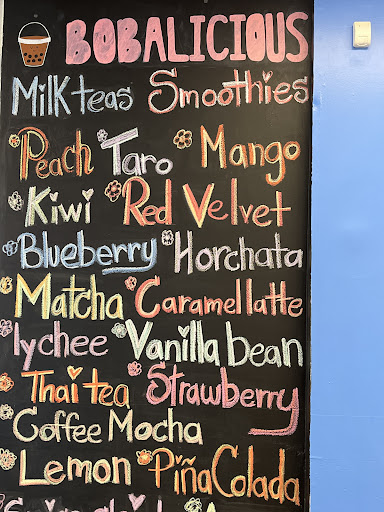 BOBALICIOUS
Milk teas Smoothies
Peach Taro Mango
Kiwi Red Velvet
Blueberry Horchata
Matcha Caramel latte
lychee Vanilla bean
Thai tea Strawberry
Coffee Mocha
Lemon Piña Colada